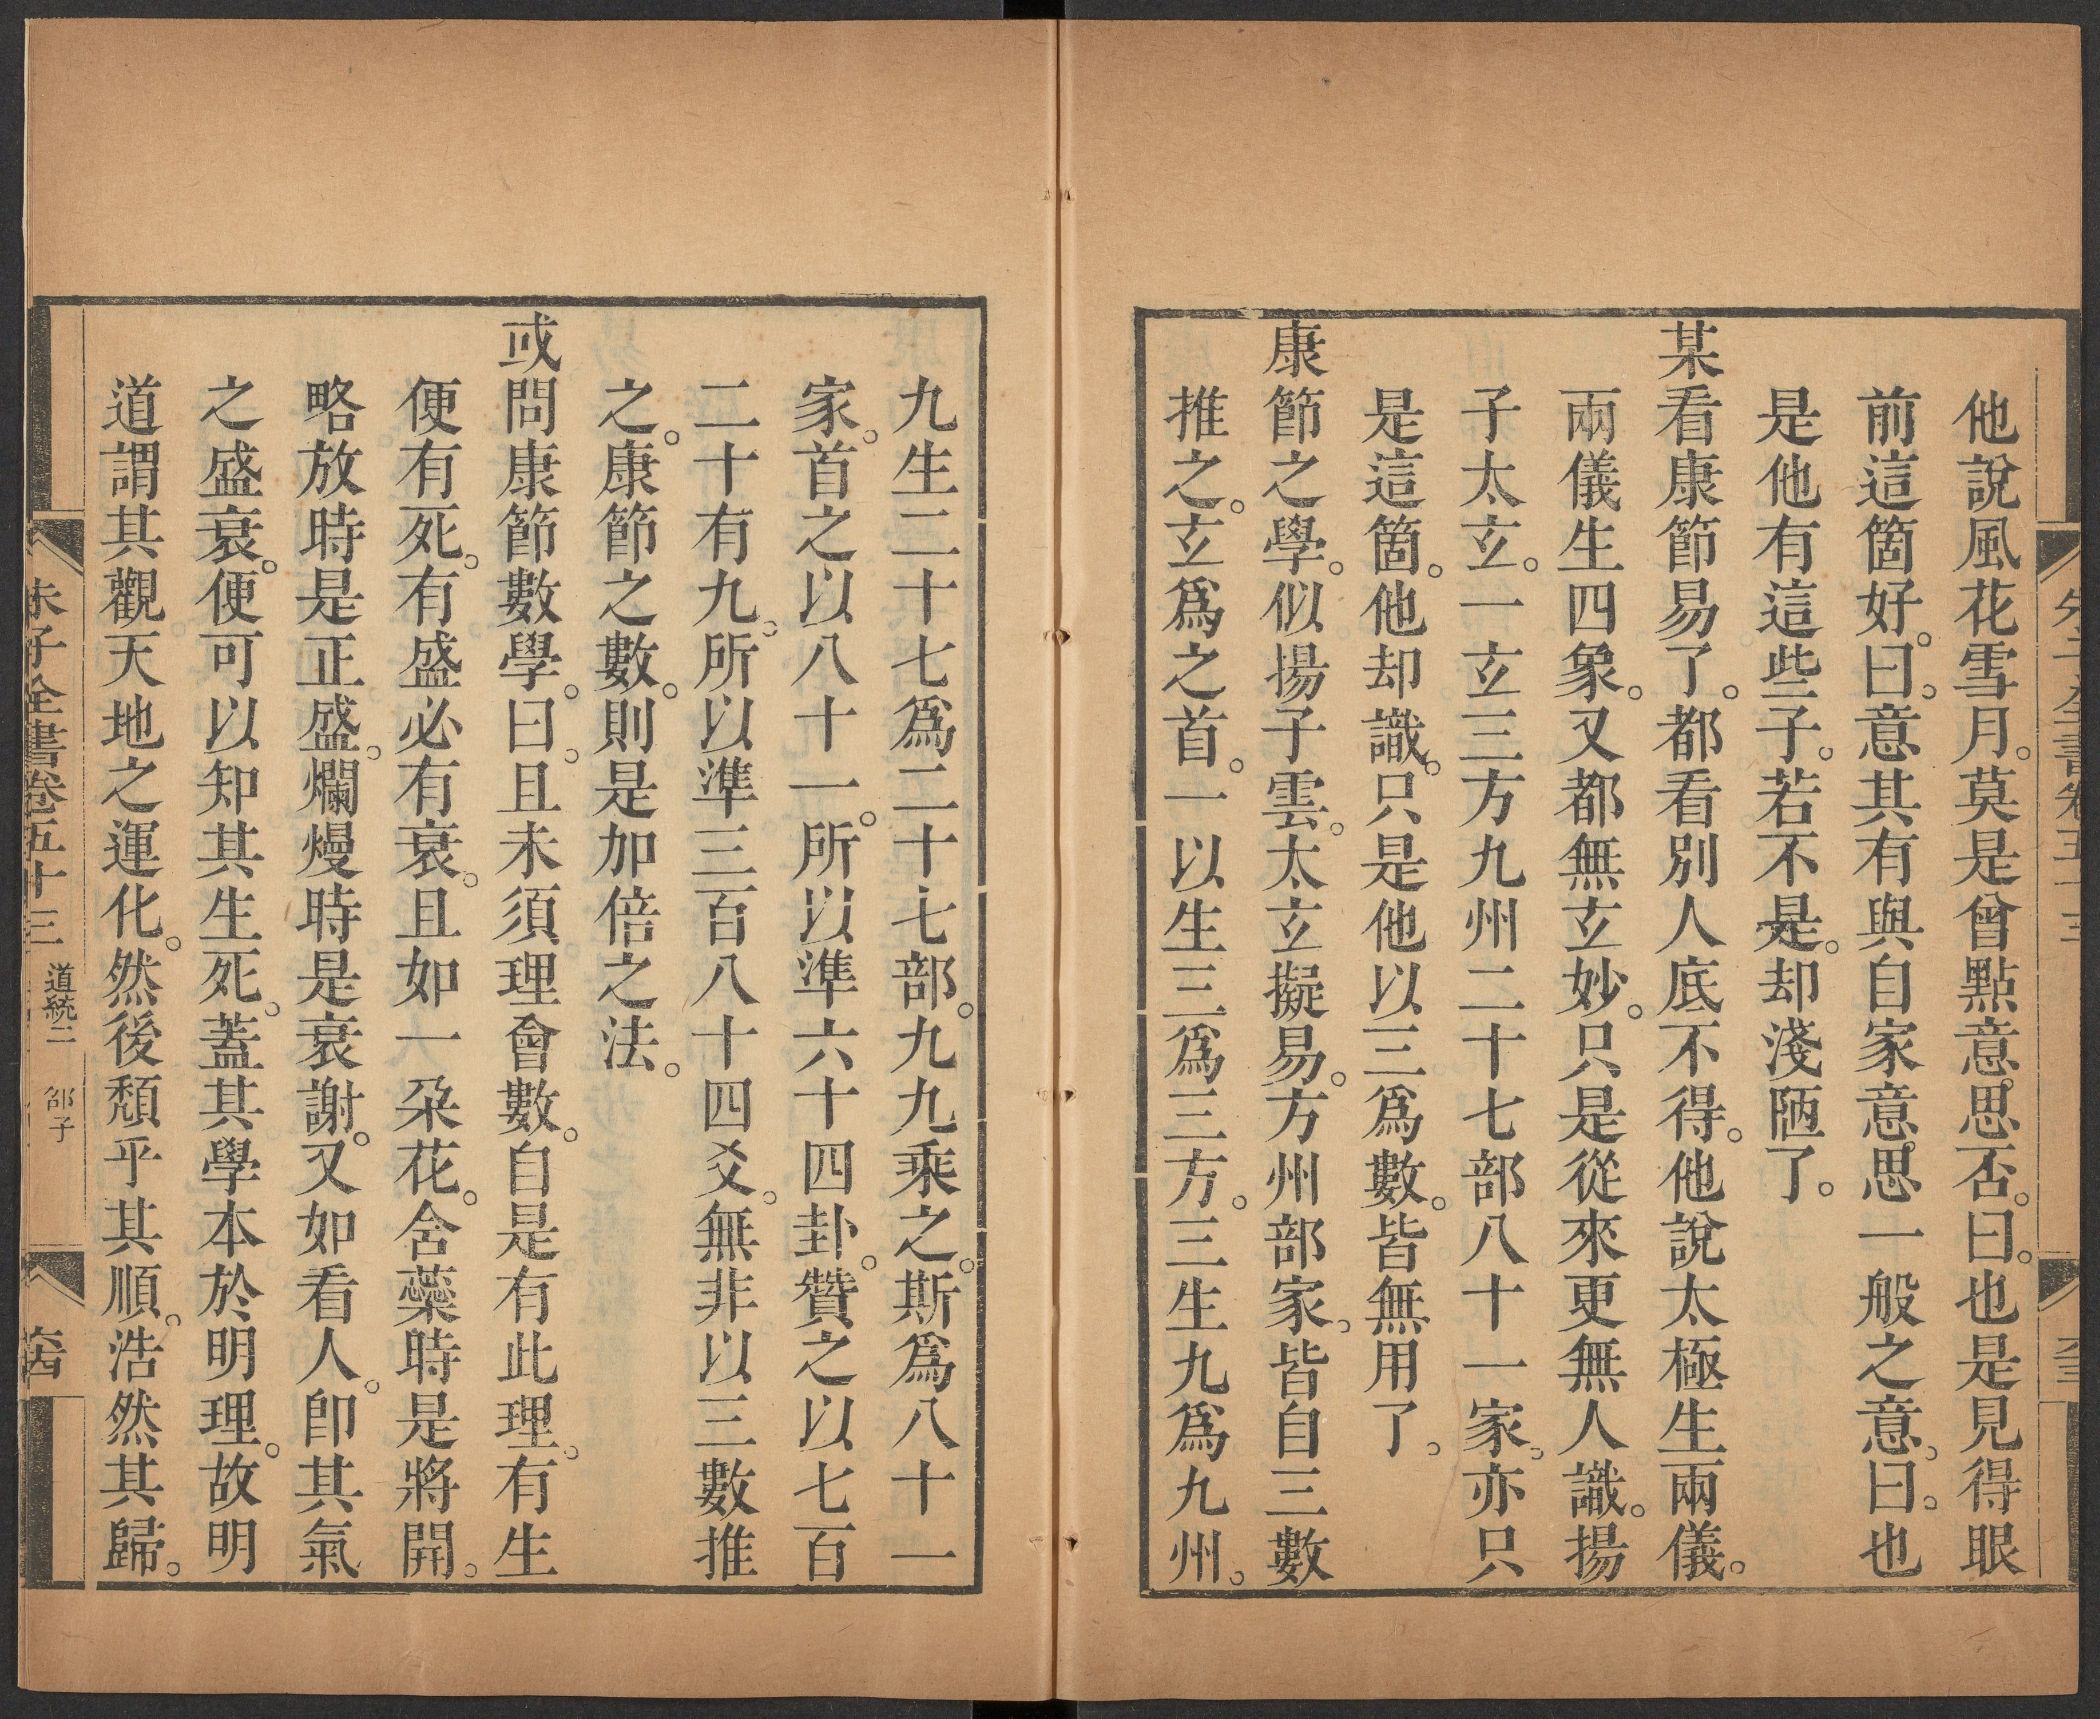 他說風花雪月。莫是曾點意思否。曰。也是見得眼
前這箇好。曰。意其有與自家意思一般之意。曰。也
是他有這些子。若不是。却淺陋了。
某看康節易了。都看別人底不得。他說太極生兩儀。
兩儀生四象。又都無玄妙。只是從來更無人識。揚
子太玄。一玄三方九州二十七部八十一家。亦只
是這箇。他却識。只是他以三爲數。皆無用了。
康節之學。似揚子雲。太玄擬易。方州部家。皆自三數
推之。玄爲之首。一以生三爲三方。三生九爲九州。
九生二十七爲二十七部。九九乘之。斯爲八十一
家。首之以八十一。所以準六十四卦。贊之以七百
二十有九。所以準三百八十四爻。無非以三數推
之。康節之數。則是加倍之法。
或問康節數學。曰。且未須理會數。自是有此理。有生
便有死。有盛必有衰。且如一朶花。含蘂時是將開。
略放時是正盛。爛熳時是衰謝。又如看人。卽其氣
之盛衰。便可以知其生死。蓋其學本於明理。故明
道謂其觀天地之運化。然後頹乎其順。浩然其歸。
朱子全書卷五十三 道統二 邵子